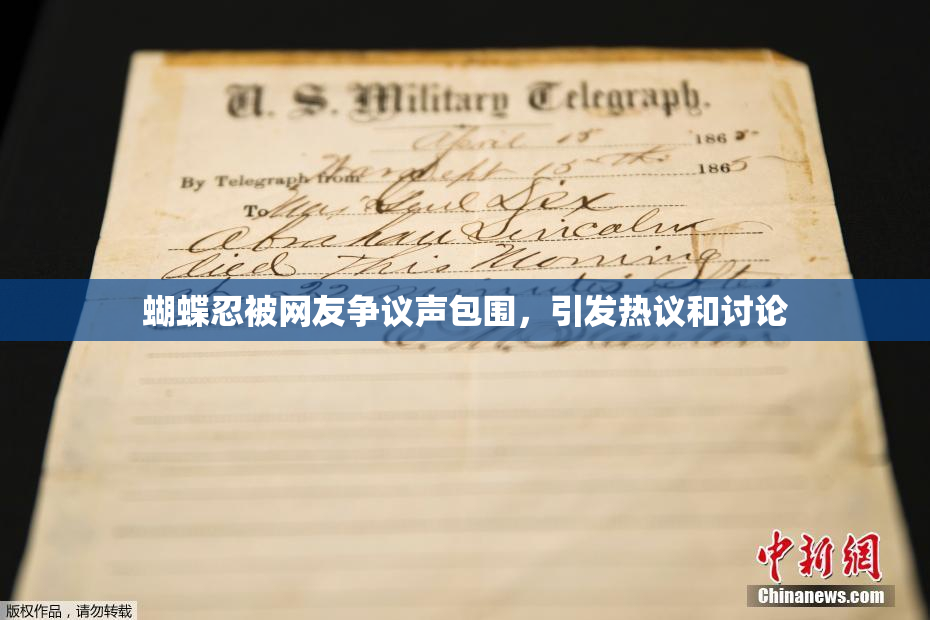 U. S. Military Telegraph.
April 15 1865
By Telegraph from War Dept 15th 1865
To Maj Genl Dix
Abraham Lincoln
died This Morning
at 22 minutes after
蝴蝶忍被网友争议声包围，引发热议和讨论
中新網
Chinanews.com
版权作品，请勿转载